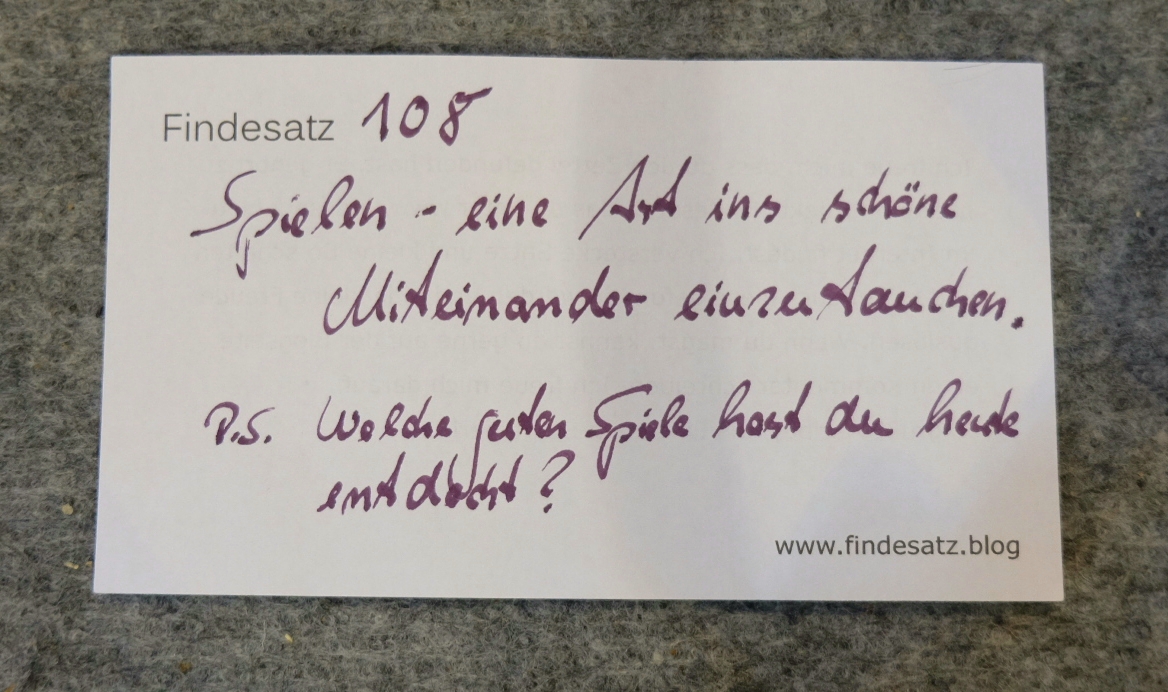 Findesatz 108
Spielen - eine Art ins schöne
Miteinander einzutauchen.
P.S. Welche guten Spiele hast du heute
entdeckt?
www.findesatz.blog